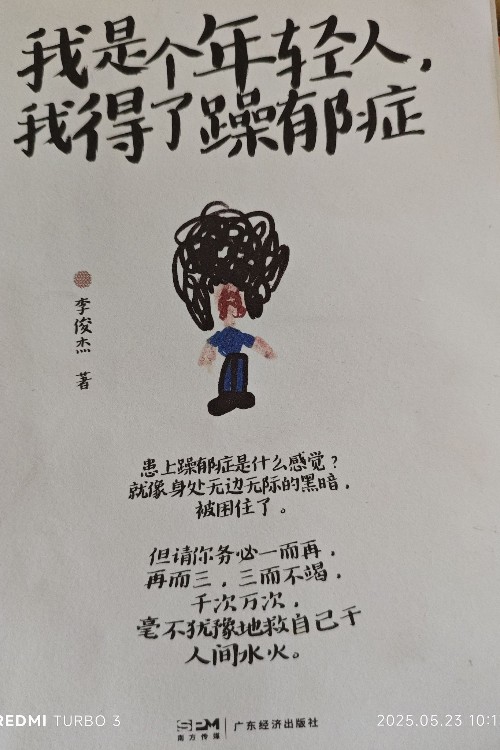 我是个年轻人，
我得了躁郁症
李俊杰 著
患上躁郁症是什么感觉？
就像身处无边无际的黑暗，
被困住了。
但请你务必一而再，
再而三，三而不竭，
千次万次，
毫不犹豫地救自己于
人间水火。
SPM
南方传媒
广东经济出版社
REDMI TURBO 3
2025.05.23 10:1